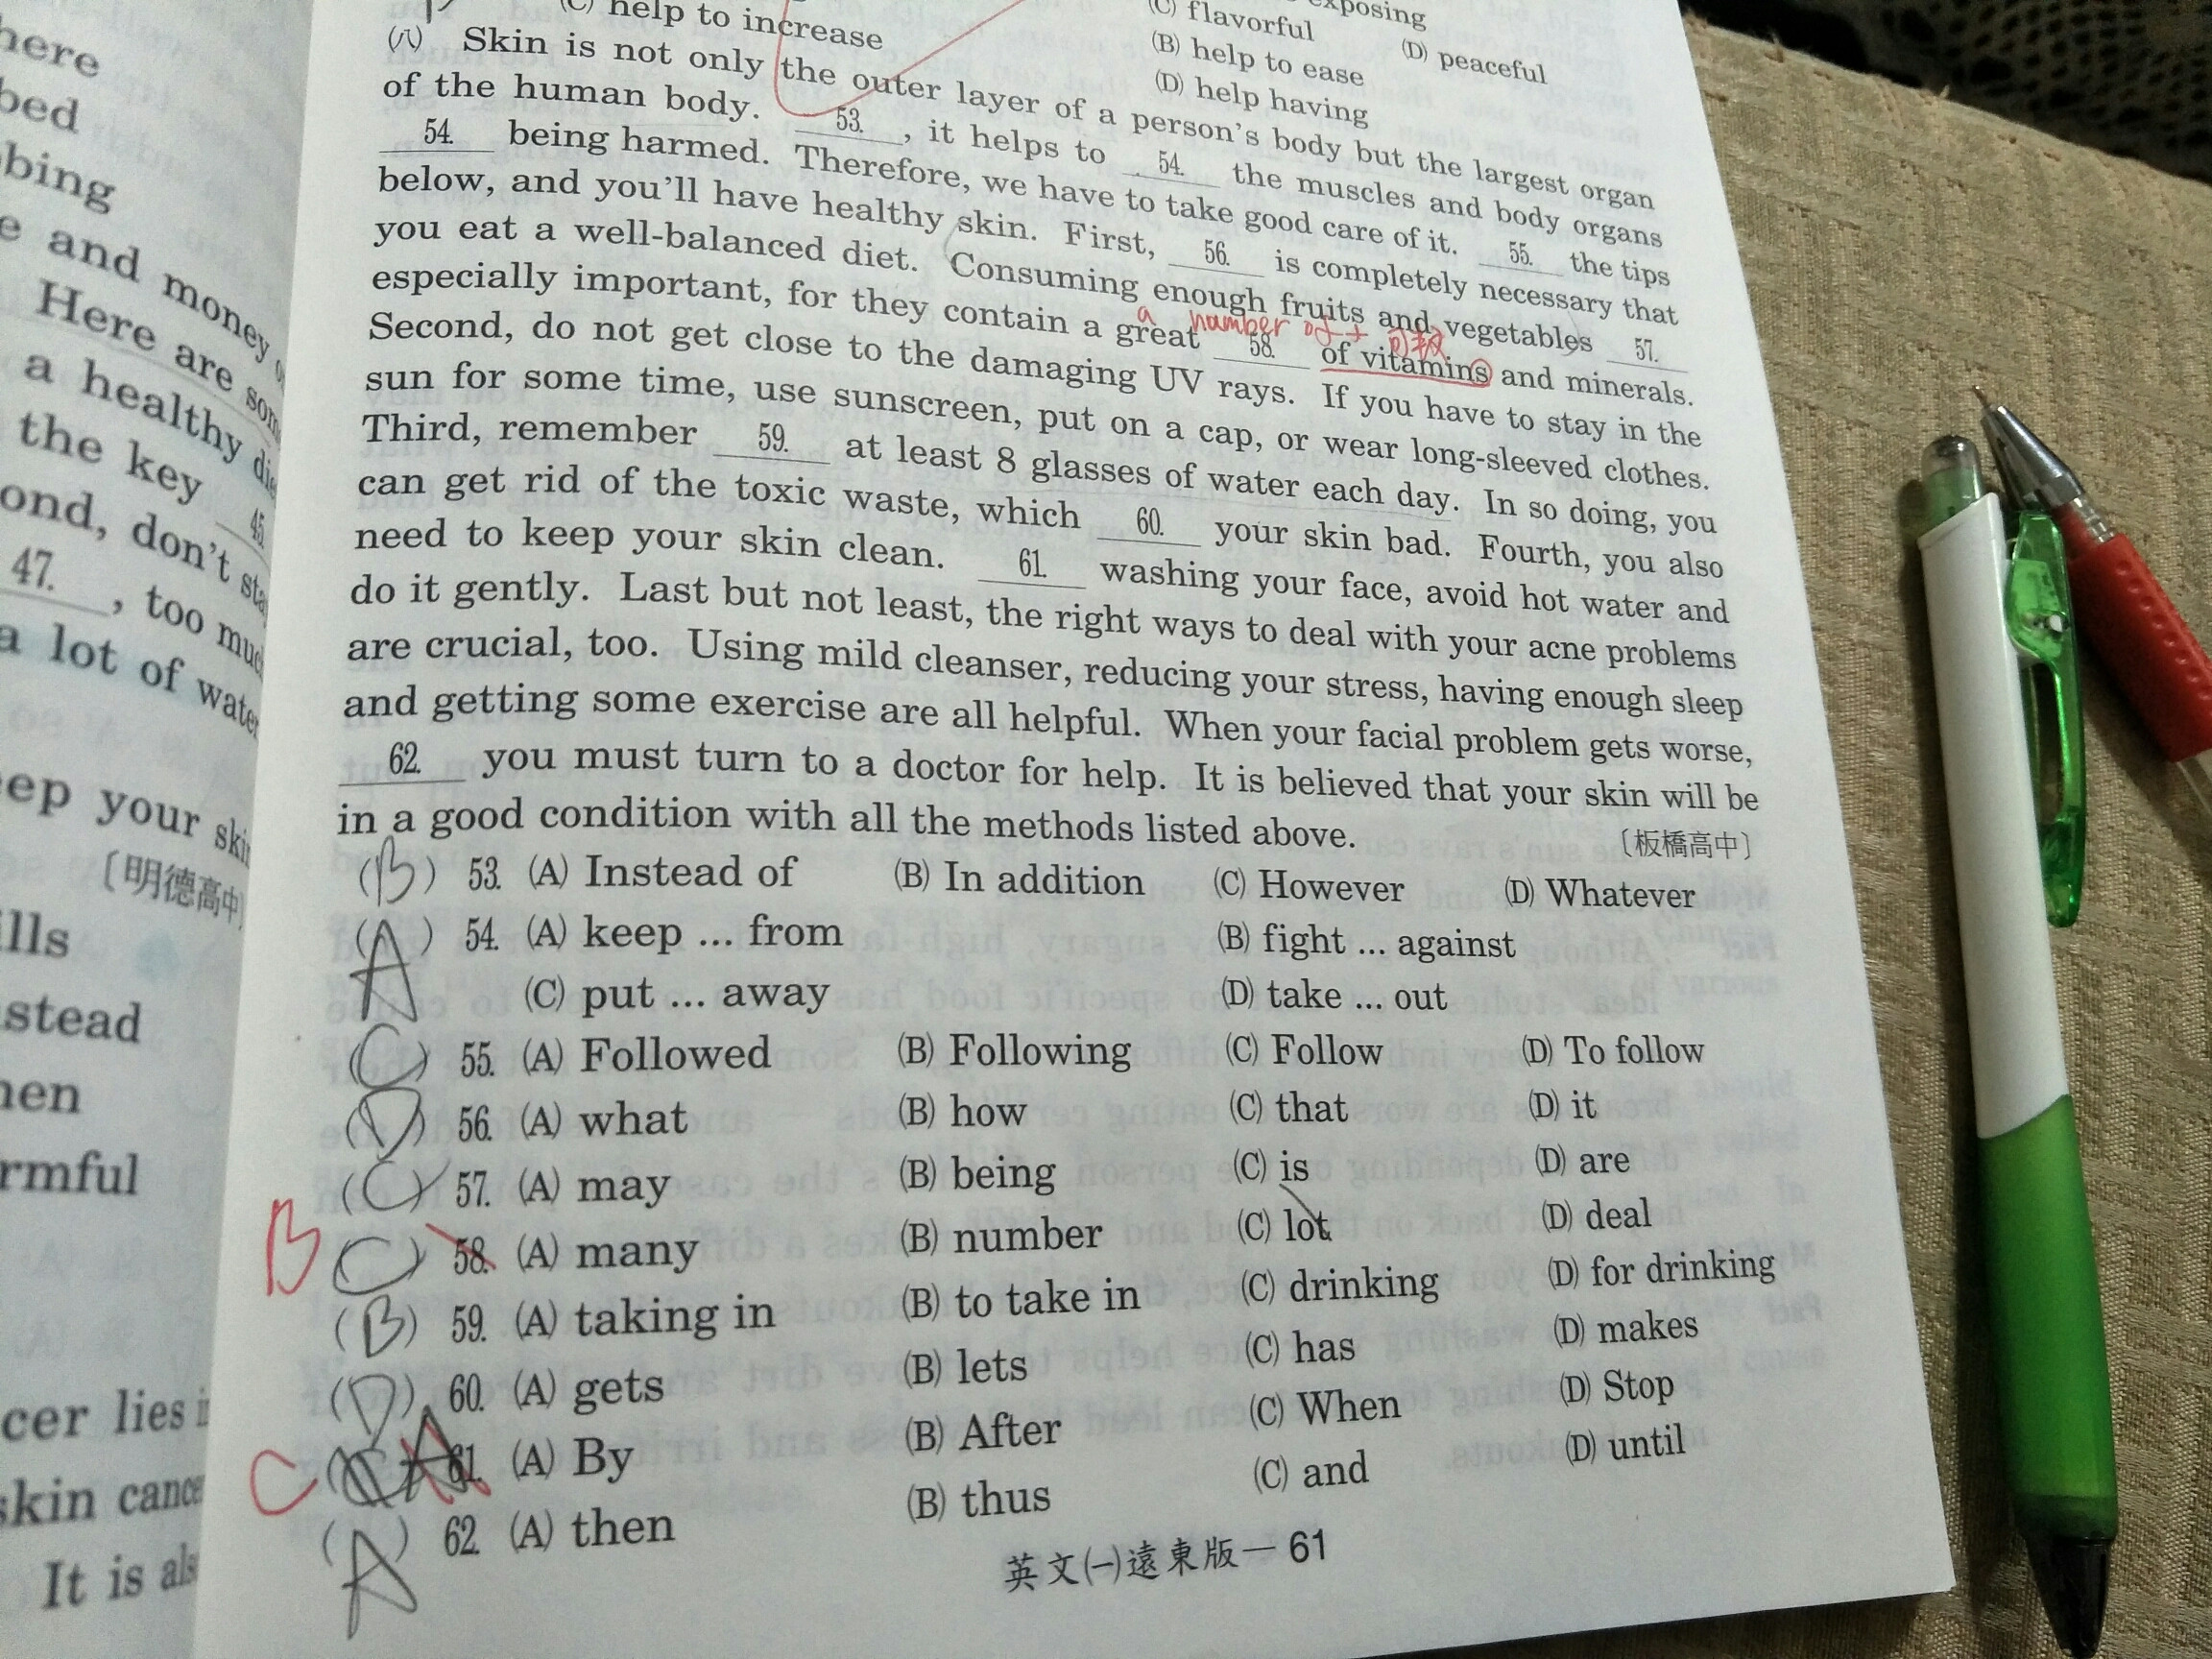 here
bed
bing
e and money
Here are som
a healthy die
the key 45.
ond, don't sta
47. , too muc
a lot of water
eep your skin
〔明德高中
ills
stead
nen
rmful
cer lies i
skin cance
It is als
(C) help to increase
exposing
(C) flavorful
(D) peaceful
(B) help to ease
(D) help having
(八) Skin is not only the outer layer of a person's body but the largest organ
of the human body. 53. , it helps to 54. the muscles and body organs
54. being harmed. Therefore, we have to take good care of it. 55. the tips
below, and you'll have healthy skin. First, 56. is completely necessary that
you eat a well-balanced diet. Consuming enough fruits and vegetables 57.
a number of + 可數
especially important, for they contain a great 58. of vitamins and minerals.
Second, do not get close to the damaging UV rays. If you have to stay in the
sun for some time, use sunscreen, put on a cap, or wear long-sleeved clothes.
Third, remember 59. at least 8 glasses of water each day. In so doing, you
can get rid of the toxic waste, which 60. your skin bad. Fourth, you also
need to keep your skin clean. 61. washing your face, avoid hot water and
do it gently. Last but not least, the right ways to deal with your acne problems
are crucial, too. Using mild cleanser, reducing your stress, having enough sleep
and getting some exercise are all helpful. When your facial problem gets worse,
62. you must turn to a doctor for help. It is believed that your skin will be
in a good condition with all the methods listed above. 〔板橋高中〕
(B) 53. (A) Instead of (B) In addition (C) However (D) Whatever
(A) 54. (A) keep ... from (B) fight ... against
(C) put ... away (D) take ... out
(C) 55. (A) Followed (B) Following (C) Follow (D) To follow
(D) 56. (A) what (B) how (C) that (D) it
(C) 57. (A) may (B) being (C) is (D) are
B (C) 58. (A) many (B) number (C) lot (D) deal
(B) 59. (A) taking in (B) to take in (C) drinking (D) for drinking
(D) 60. (A) gets (B) lets (C) has (D) makes
C A 61. (A) By (B) After (C) When (D) Stop
(A) 62. (A) then (B) thus (C) and (D) until
英文(一)遠東版－61